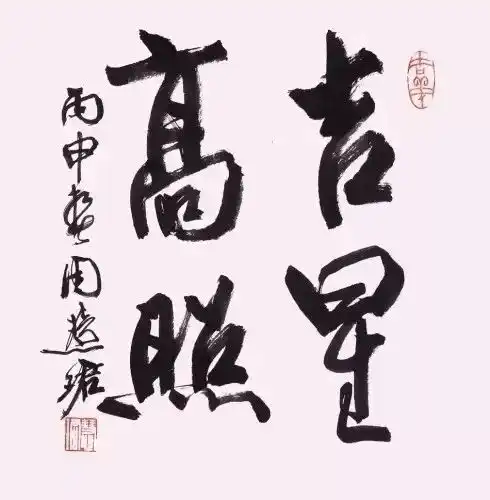 吉星
高照
丙申周慧珺